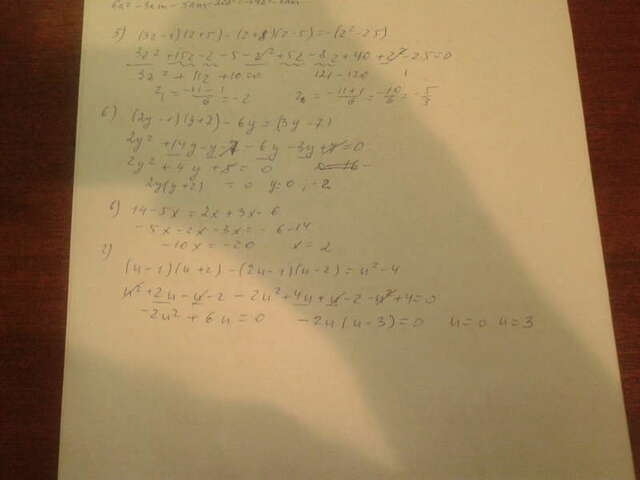 5) (3z-1)(z+5) - (z+8)(z-5) = -(z²-25)
3z² + 15z - z - 5 - z² + 5z - 8z + 40 + z² - 25 = 0
3z² + 11z + 10 = 0 121 - 120 1
z₁ = (-11-1)/6 = -2 z₂ = (-11+1)/6 = -10/6 = -5/3
б) (2y-1)(y+7) - 6y = (3y-7)
2y² + 14y - y - 7 - 6y - 3y + 7 = 0
2y² + 4y = 0
2y(y+2) = 0 y=0; -2
в) 14 - 5x = 2x + 3x - 6
-5x - 2x - 3x = -6 - 14
-10x = -20 x = 2
г)
(u-1)(u+2) - (2u-1)(u-2) = u² - 4
u² + 2u - u - 2 - 2u² + 4u + u - 2 - u² + 4 = 0
-2u² + 6u = 0 -2u(u-3) = 0 u=0 u=3